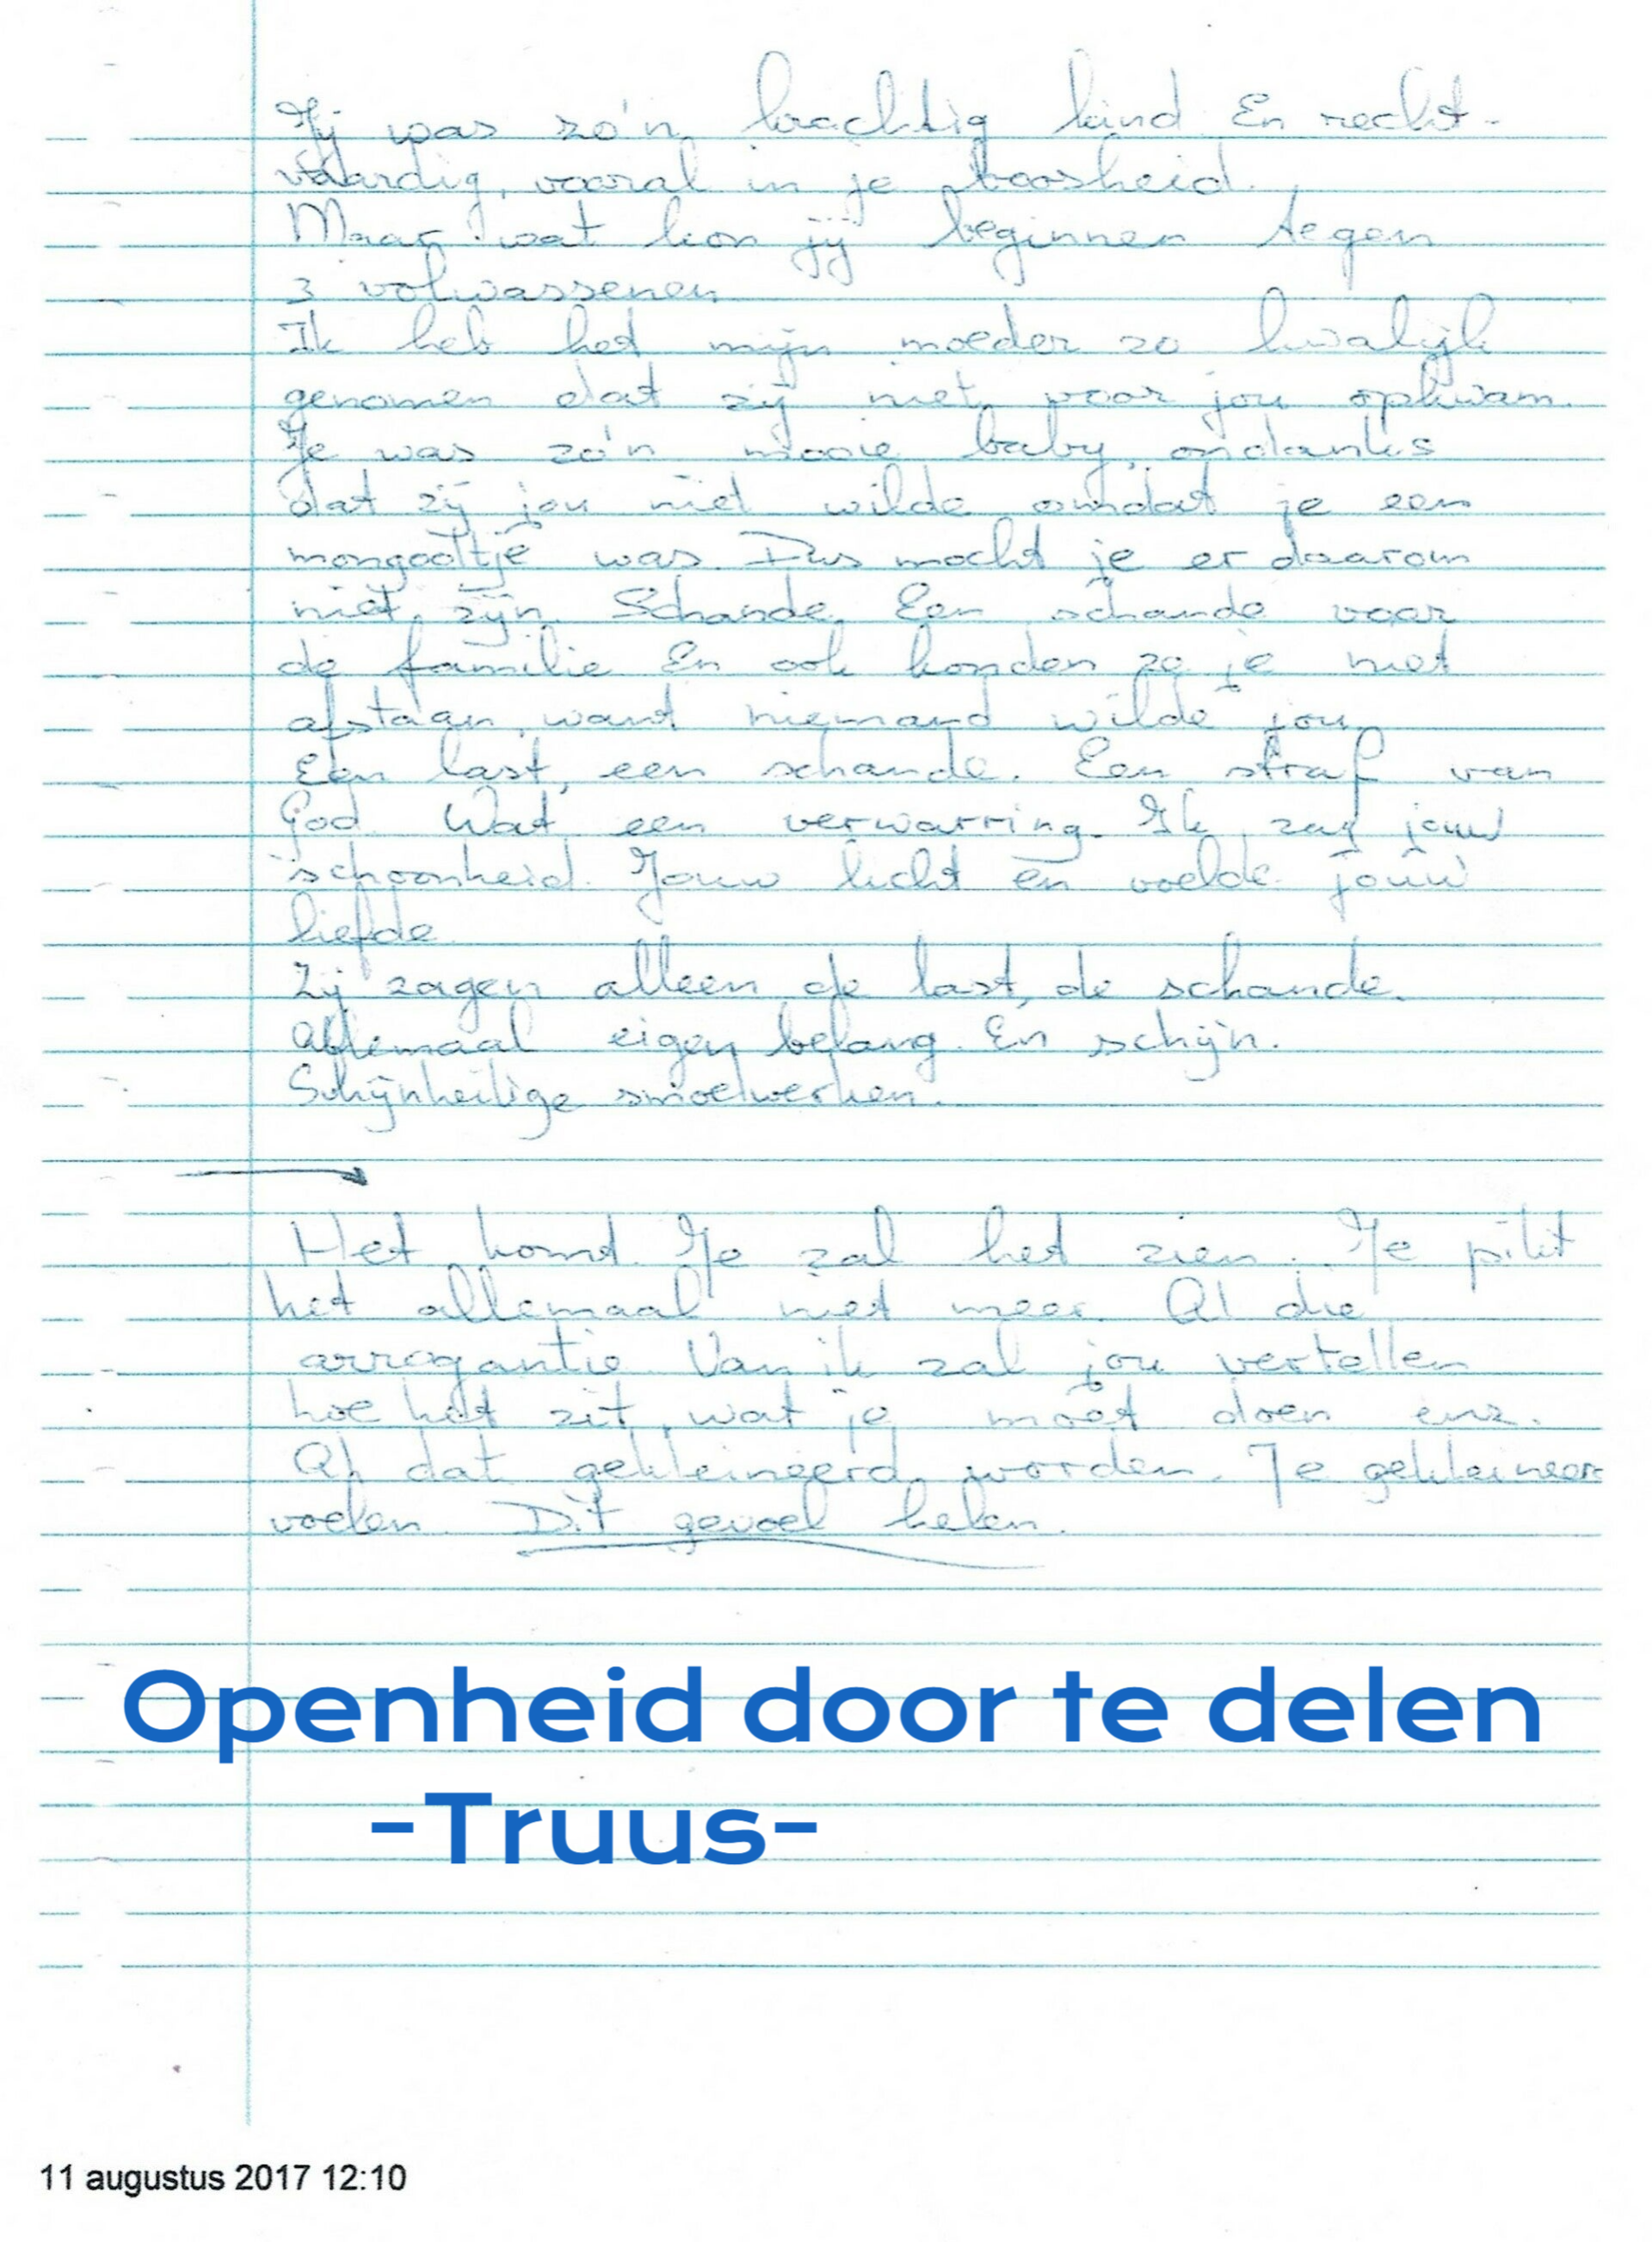 Jij was zo'n krachtig kind En recht-
vaardig, vooral in je boosheid.
Maar wat kon jij beginnen tegen
3 volwassenen
Ik heb het mijn moeder zo kwalijk
genomen dat zij niet voor jou opkwam.
Je was zo'n mooie baby, ondanks
dat zij jou niet wilde omdat je een
mongooltje was. Dus mocht je er daarom
niet zijn. Schande. Een schande voor
de familie En ook konden ze je niet
afstaan, want niemand wilde jou.
Een last, een schande. Een straf van
God. Wat een verwarring. Ik zag jouw
schoonheid. Jouw licht en voelde jouw
liefde.
Zij zagen alleen de last, de schande.
Allemaal eigen belang. En schijn.
Schijnheilige smoelwerken.
Het komt. Je zal het zien. Je pikt
het allemaal niet meer. Al die
arrogantie. Van ik zal jou vertellen
hoe het zit, wat je moet doen enz.
Al dat gekleineerd worden. Je gekleineer
voelen. Dit gevoel helen.
Openheid door te delen
-Truus-
11 augustus 2017 12:10